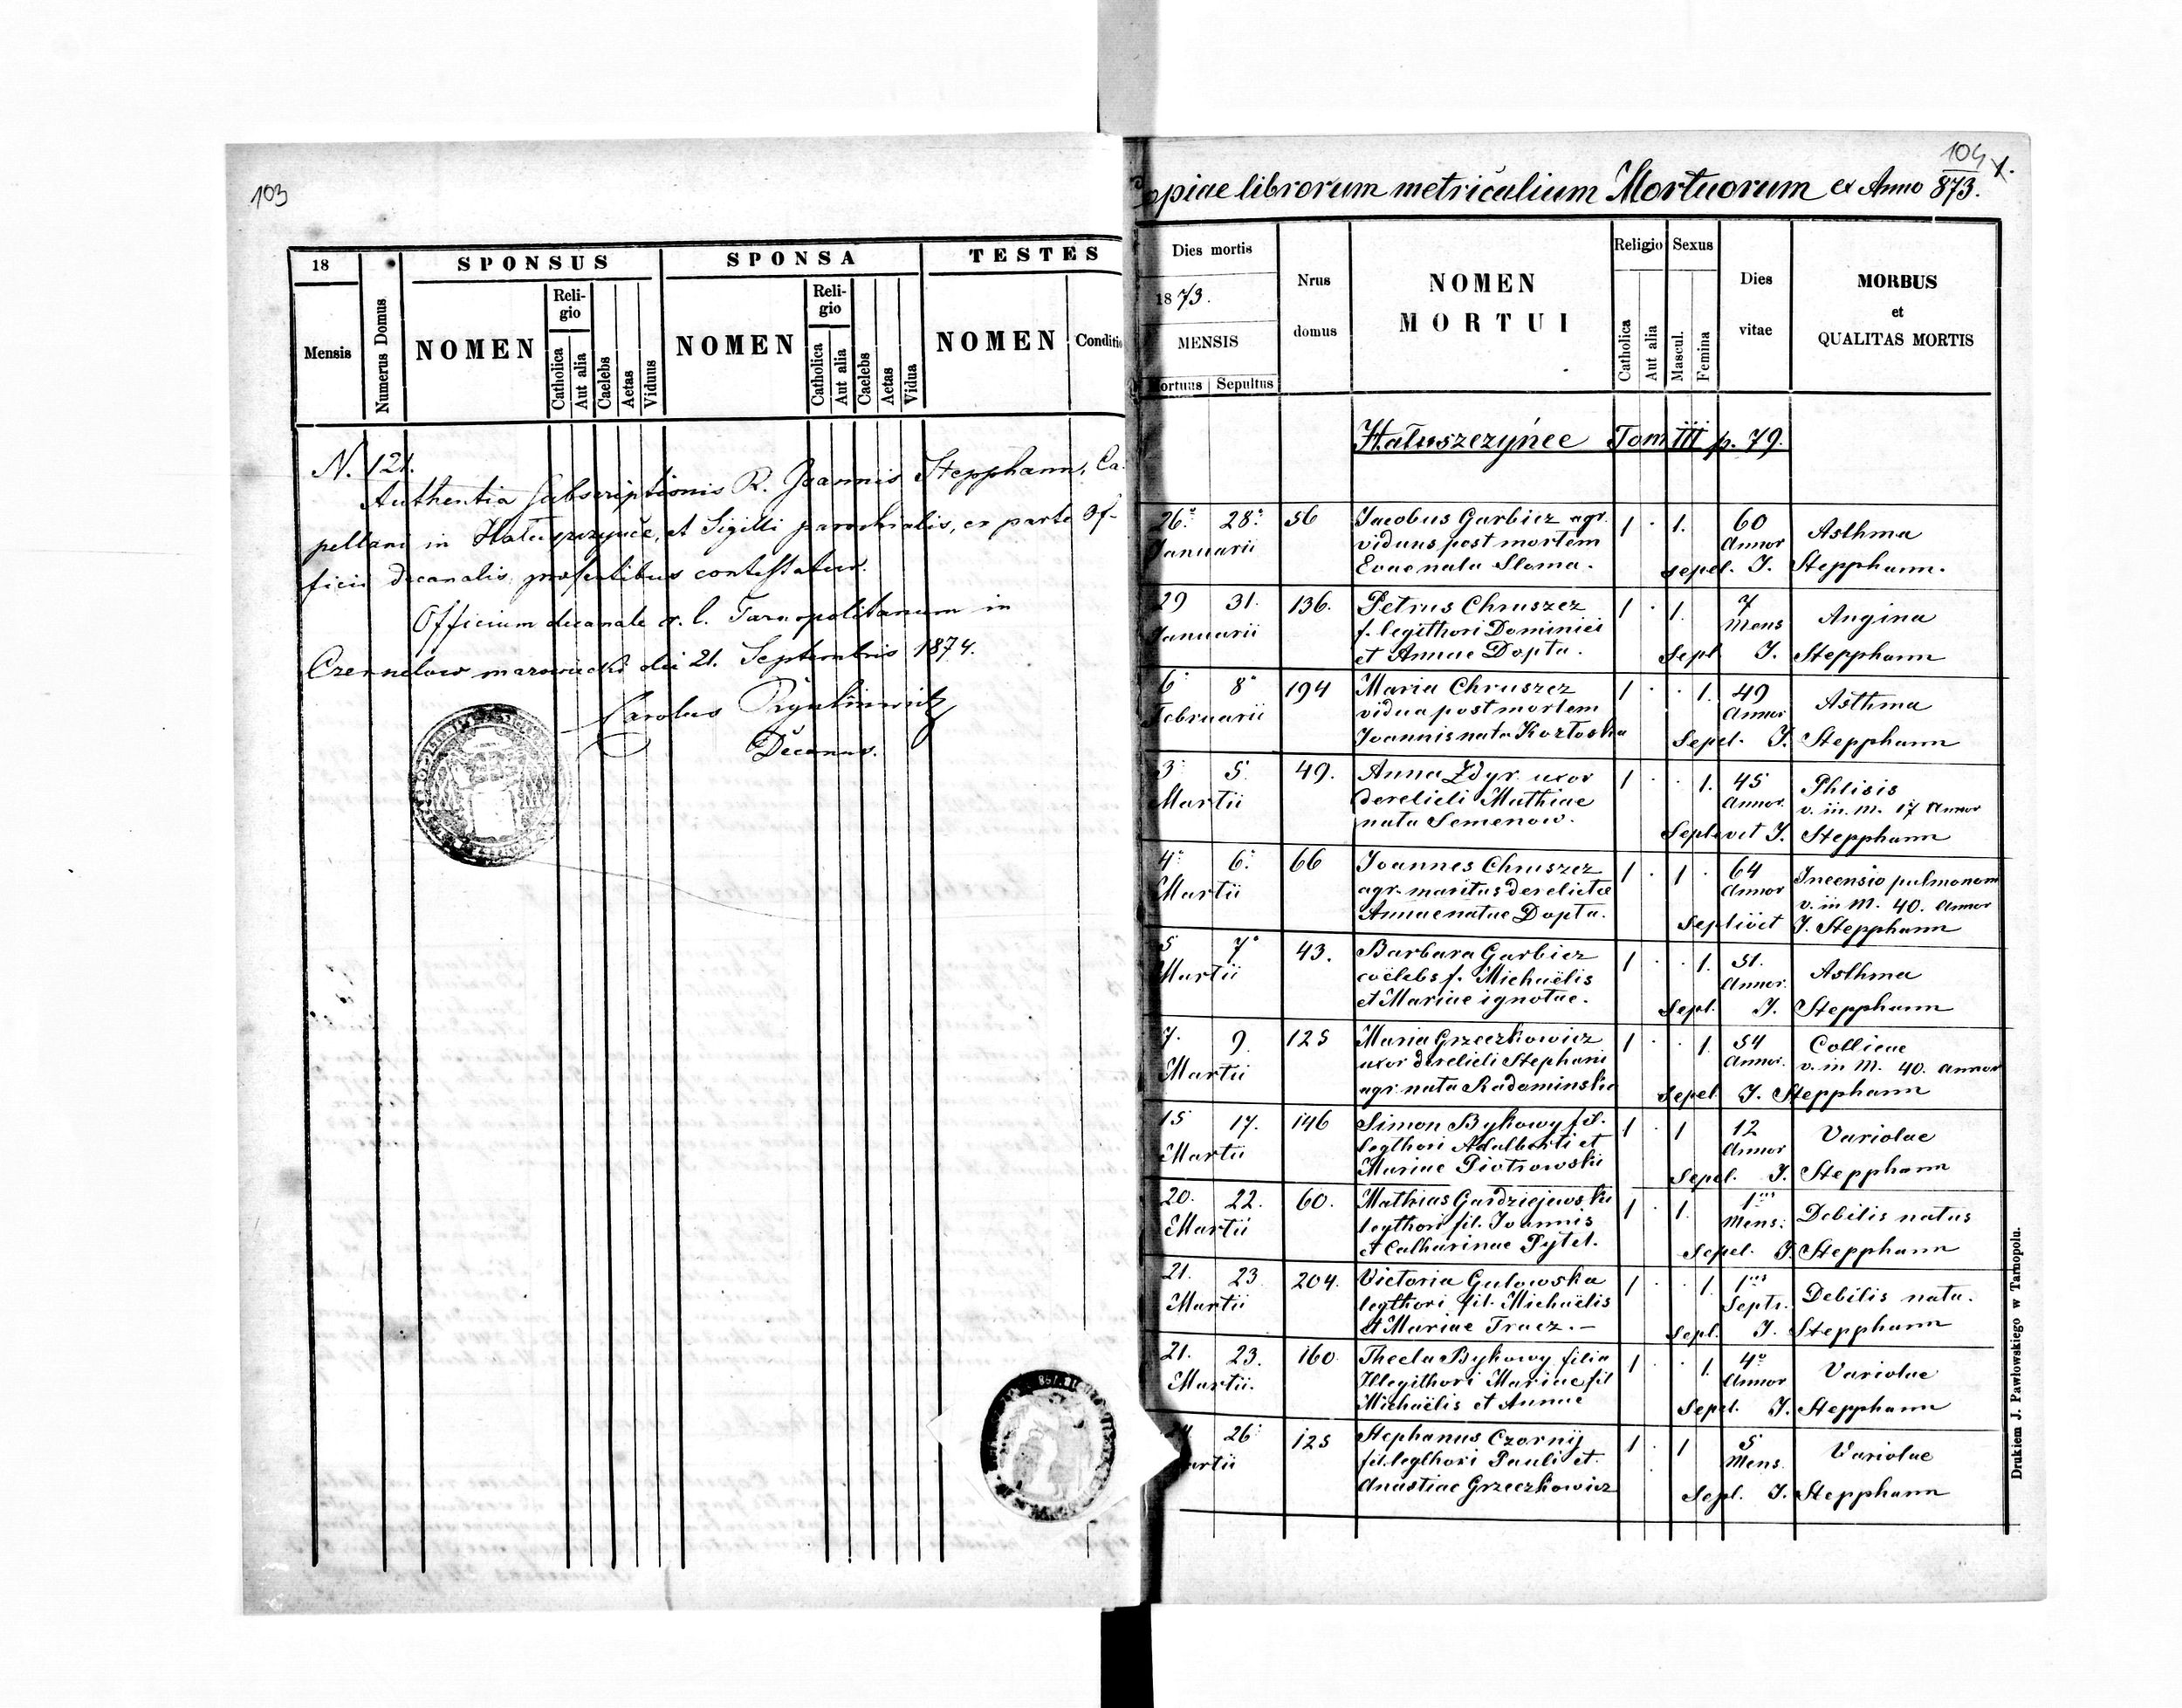 103
18
SPONSUS
SPONSA
TESTES
Mensis
Numerus Domus
NOMEN
Reli-
gio
Catholica
Aut alia
Caelebs
Aetas
Viduus
NOMEN
Reli-
gio
Catholica
Aut alia
Caelebs
Aetas
Vidua
NOMEN
Conditio
N. 121.
Authentia subscriptionis R. Joannis Stepphann, Ca-
pellani in et Sigilli parochialis, ex parte Of-
ficii decanalis contestatur.
Officium decanale r. l. Tarnopolitanum in
Czernelow mazowiecki die 21. Septembris 1874.
Carolus
Decanus.
104
1.
opiae librorum metricalium Mortuorum ex Anno 873.
Dies mortis
1873.
MENSIS
Mortuus Sepultus
Nrus
domus
NOMEN
MORTUI
Religio
Catholica
Aut alia
Sexus
Mascul.
Femina
Dies
vitae
MORBUS
et
QUALITAS MORTIS
Hałuszczyńce Tom III p. 79.
26. 28. 56 Jacobus Garbicz agr. 1 1. 60 Asthma
Januarii viduus post mortem Annor
Evae nata Sloma. sepel. J. Stepphann.
29 31. 136. Petrus Chruszcz 1 1. 7 Angina
Januarii f. legithori Dominici Mens
et Annae Dopta. Sepl J. Stepphann
6 8 194 Maria Chruszcz 1 1. 49 Asthma
Februarii vidua post mortem Annor
Joannis nata Kozłoska Sepel. J. Stepphann
3 5. 49. Anna Zdyr uxor 1 1. 45 Phtisis
Martii derelicti Mathiae Annor. v. in. m. 17 Annor
nata Semenow. Seplevit J. Stepphann
4 6. 66 Joannes Chruszcz 1 1 64 Incensio pulmonom
Martii agr. maritus derelictae Annor v. in M. 40. Annor
Annae natae Dopta. Seplivit J. Stepphann
5 7 43. Barbara Garbicz 1 1. 51. Asthma
Martii coëlebs f. Michaëlis Annor.
et Mariae ignotae. Sepl. J. Stepphann
7. 9. 125 Maria Grzeczkowicz 1 1. 54 Collicae
Martii uxor derelicti Stephani Annor. v. in M. 40. Annor
agr. nata Radominska Sepel J. Stepphann
15 17. 146 Simon Bykowy fil. 1 1 12 Variolae
Martii legthori Adalberti et Annor
Mariae Piotrowskii Sepel. J. Stepphann
20. 22. 60. Mathias Gardziejewski 1 1. 1 Debilis natus
Martii legthori fil. Joannis Mens.
et Catharinae Pytel. Sepel. J. Stepphann
21. 23 204. Victoria Gulowska 1 1. 1 Debilis nata.
Martii legthori fil. Michaëlis Septi.
et Mariae Tracz. – Sepl. J. Stepphann
21. 23. 160 Thecla Bykowy filia 1 1. 4 Variolae
Martii. Illegithori Mariae fil Annor
Michaëlis et Annae Sepel. J. Stepphann
26 125 Stephanus Czornij 1 1 5 Variolae
artii fil. legthori Pauli et Mens.
Anastiae Grzeczkowicz Sepl. J. Stepphann
Drukiem J. Pawłowskiego w Tarnopolu.